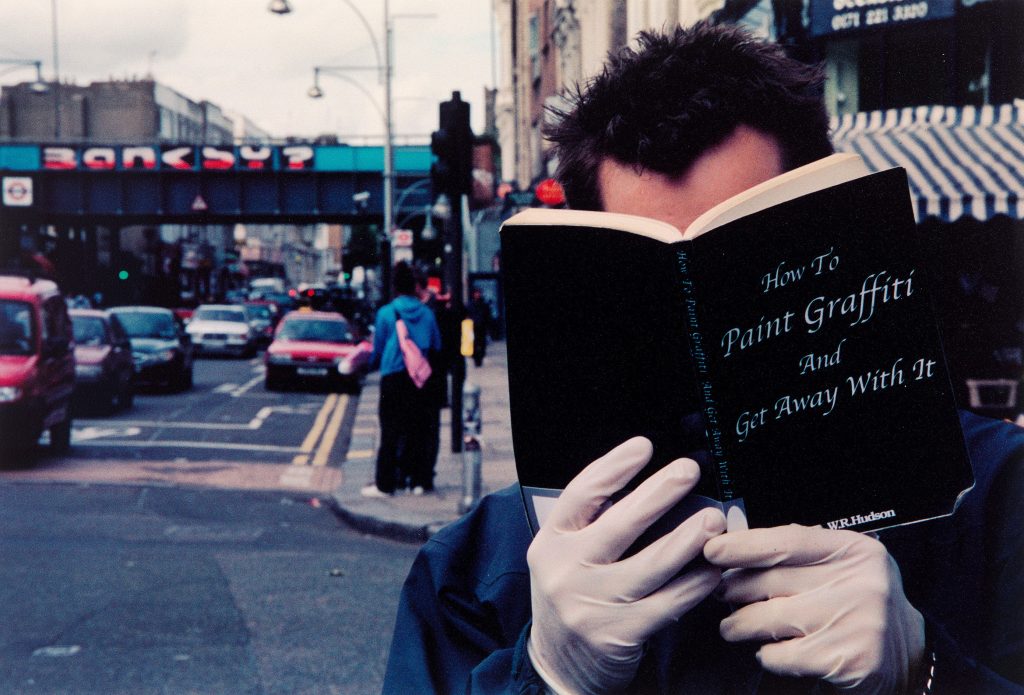 BANKSY?
0171 221 3320
How To
Paint Graffiti
And
Get Away With It
How To Paint Graffiti And Get Away With It
W.R.Hudson